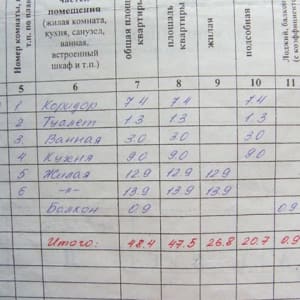 Номер комнаты,
т.п. на пла
помещений
(жилая комната,
кухня, санузел,
ванная,
встроенный
шкаф и т.п.)
общая площ
квартиры
площадь
квартиры
жилая
подсобная
Лоджий, балкон
(с коэффициент
5 6 7 8 9 10 11
1 Коридор 7.4 7.4 7.4
2 Туалет 1.3 1.3 1.3
3 Ванная 3.0 3.0 3.0
4 Кухня 9.0 9.0 9.0
5 Жилая 12.9 12.9 12.9
6 -"- 13.9 13.9 13.9
Балкон 0.9 0.9
Итого: 48.4 47.5 26.8 20.7 0.9